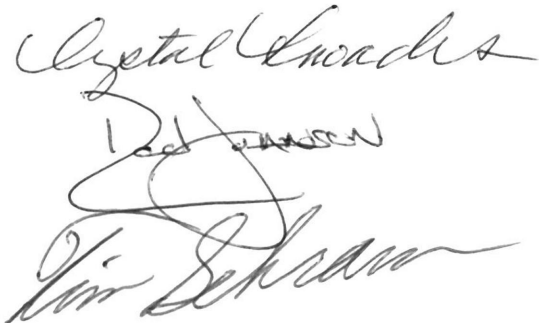 Crystal Rhoades
Dod Johnson
Tim Schram